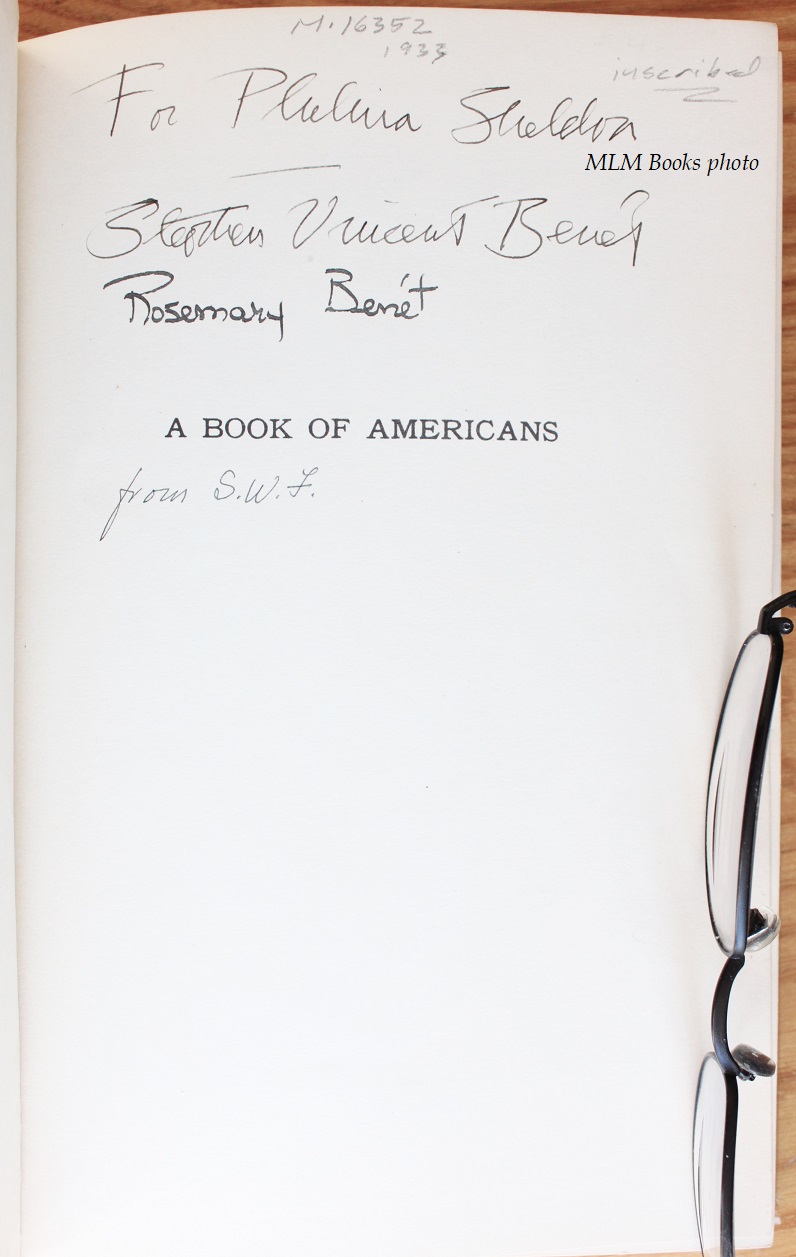 M.16352
1933
inscribed
For Sheldon
MLM Books photo
Stephen Vincent Benét
Rosemary Benét
A BOOK OF AMERICANS
from S.W.F.